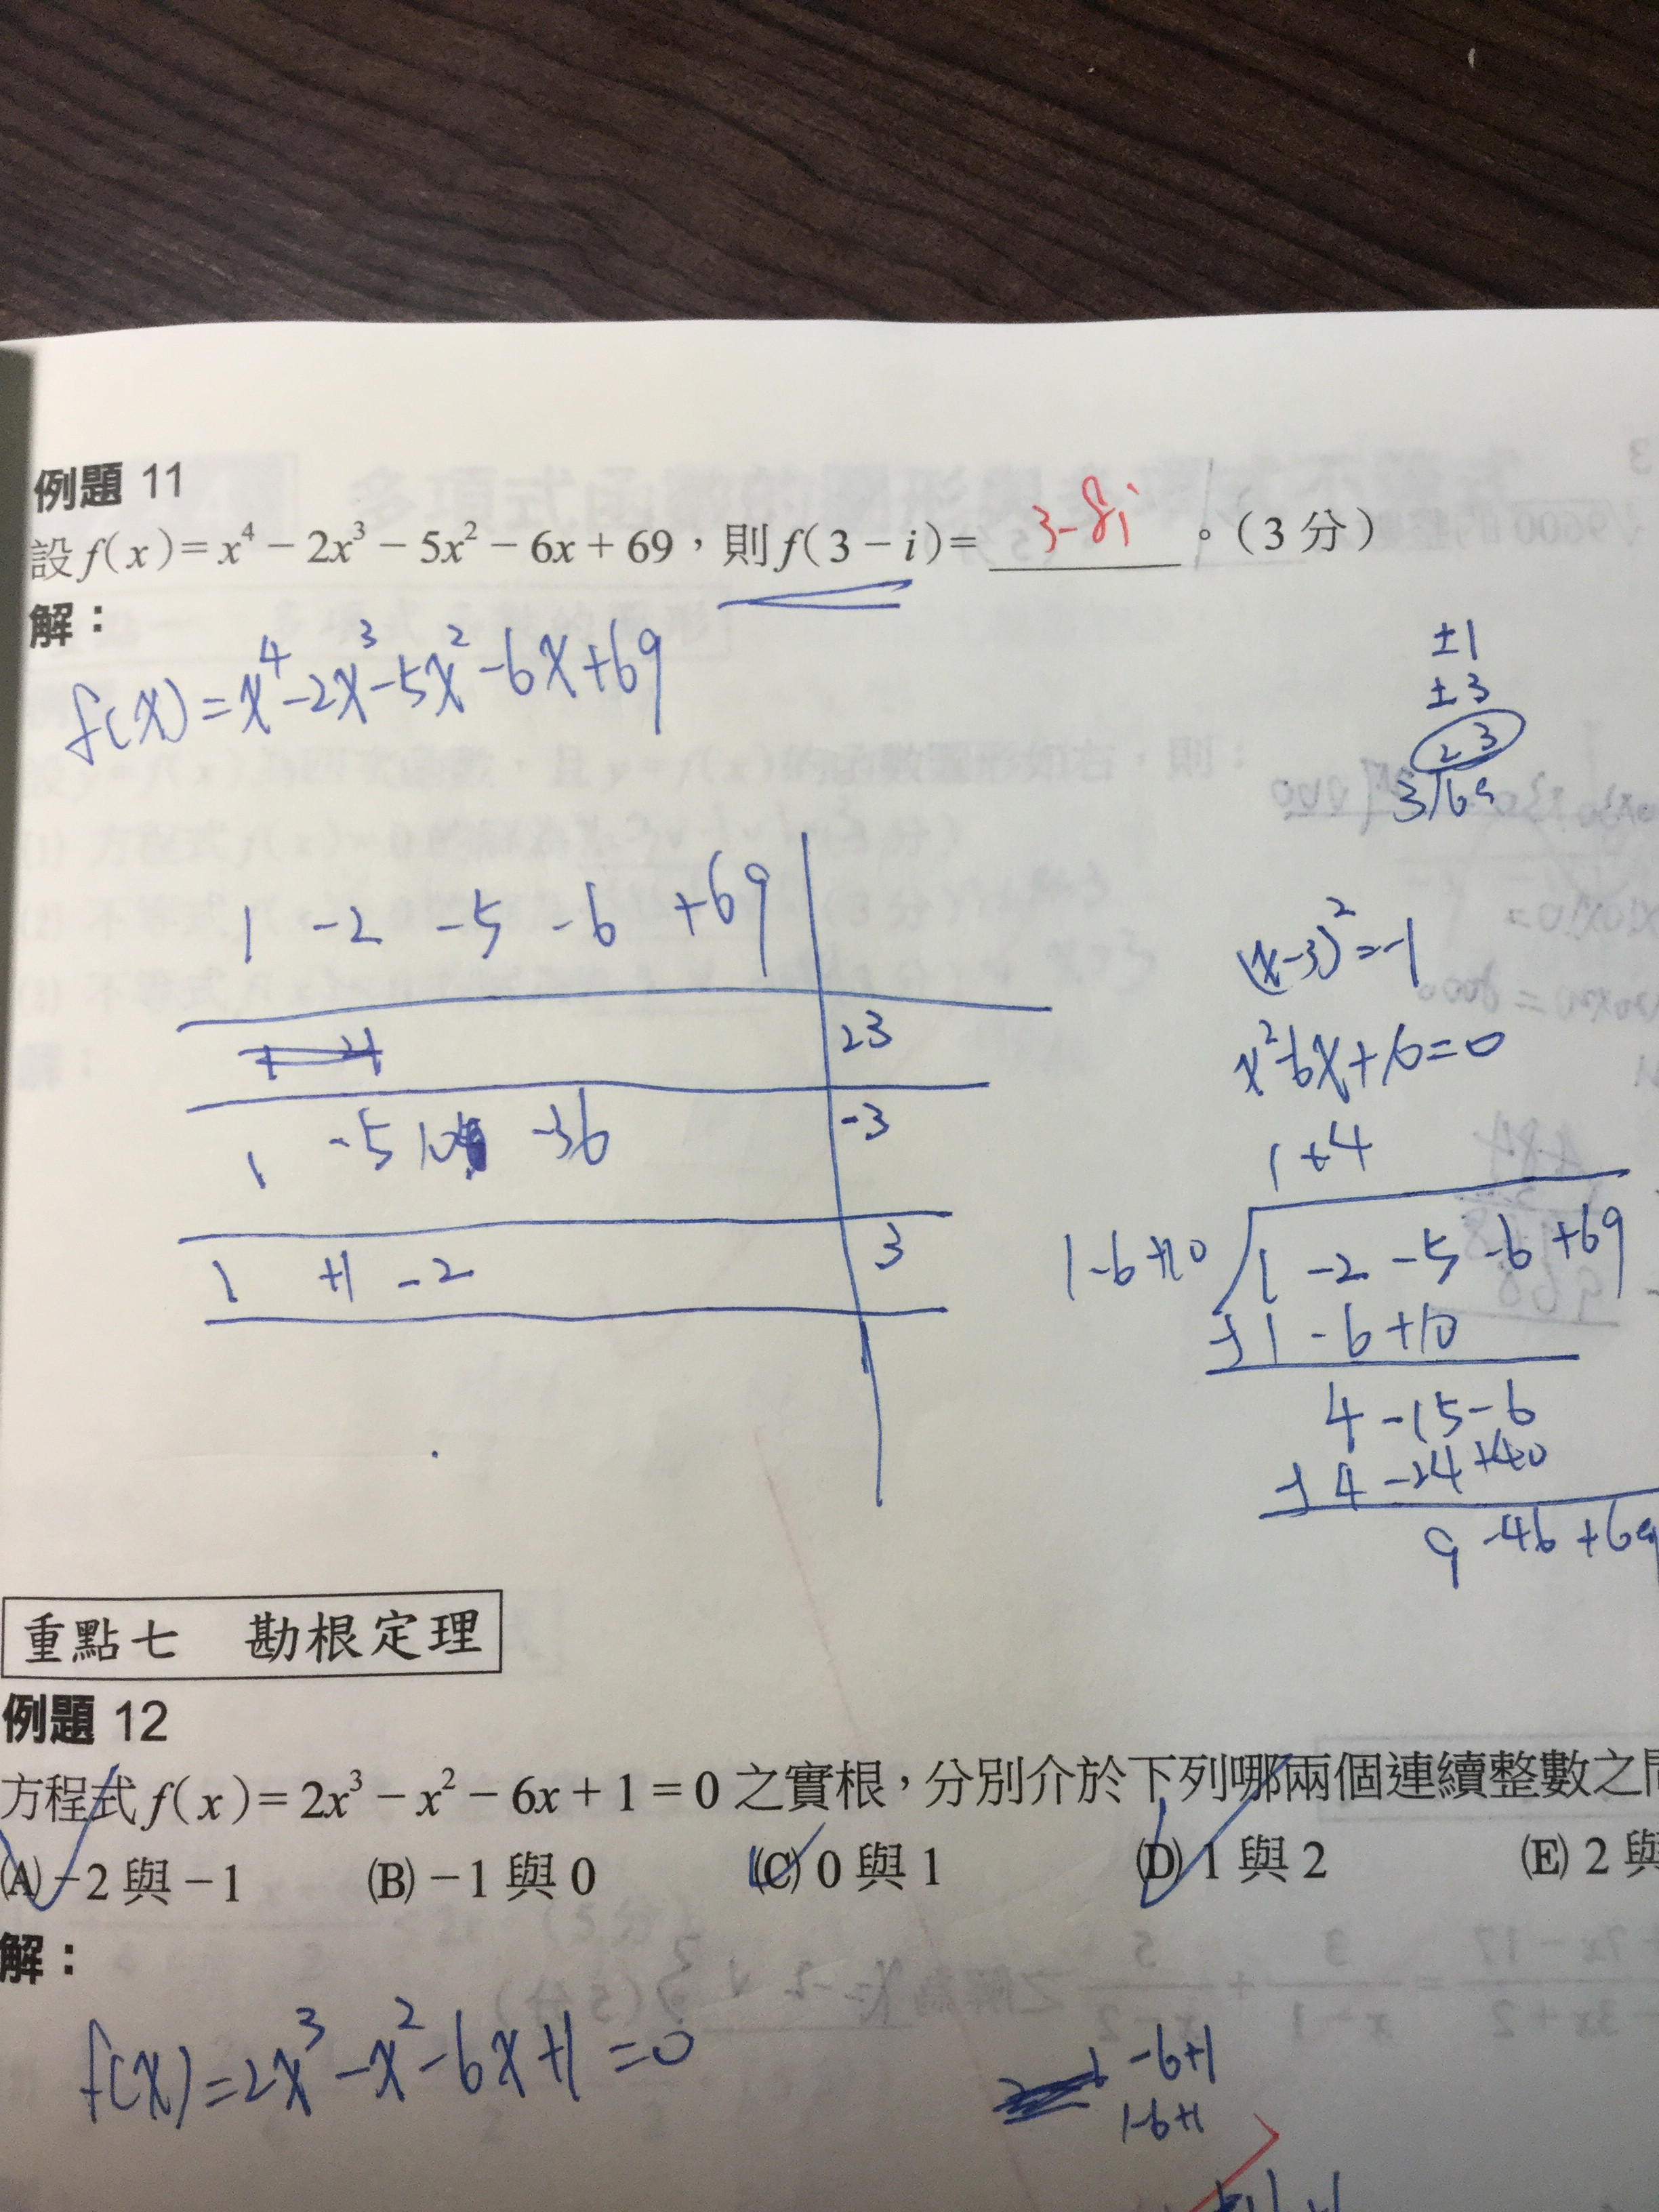 例題 11
設 f(x)=x⁴－2x³－5x²－6x＋69，則 f(3－i)= 3-8i 。(3 分)
解：
f(x)=x⁴-2x³-5x²-6x+69
±1
±3
23
3/69
1 -2 -5 -6 +69
23
1 -5 10 -36 -3
1 +1 -2 3
(x-3)²=-1
x²-6x+10=0
1+4
1-6+10 1 -2 -5 -6 +69
-) 1 -6 +10
4 -15 -6
-) 4 -24 +40
9 -46 +69
重點七 勘根定理
例題 12
方程式 f(x)=2x³－x²－6x＋1=0 之實根，分別介於下列哪兩個連續整數之
(A)－2 與－1 (B)－1 與 0 (C) 0 與 1 (D) 1 與 2 (E) 2 與
解：
f(x)=2x³-x²-6x+1=0
-6+1
1-6+1